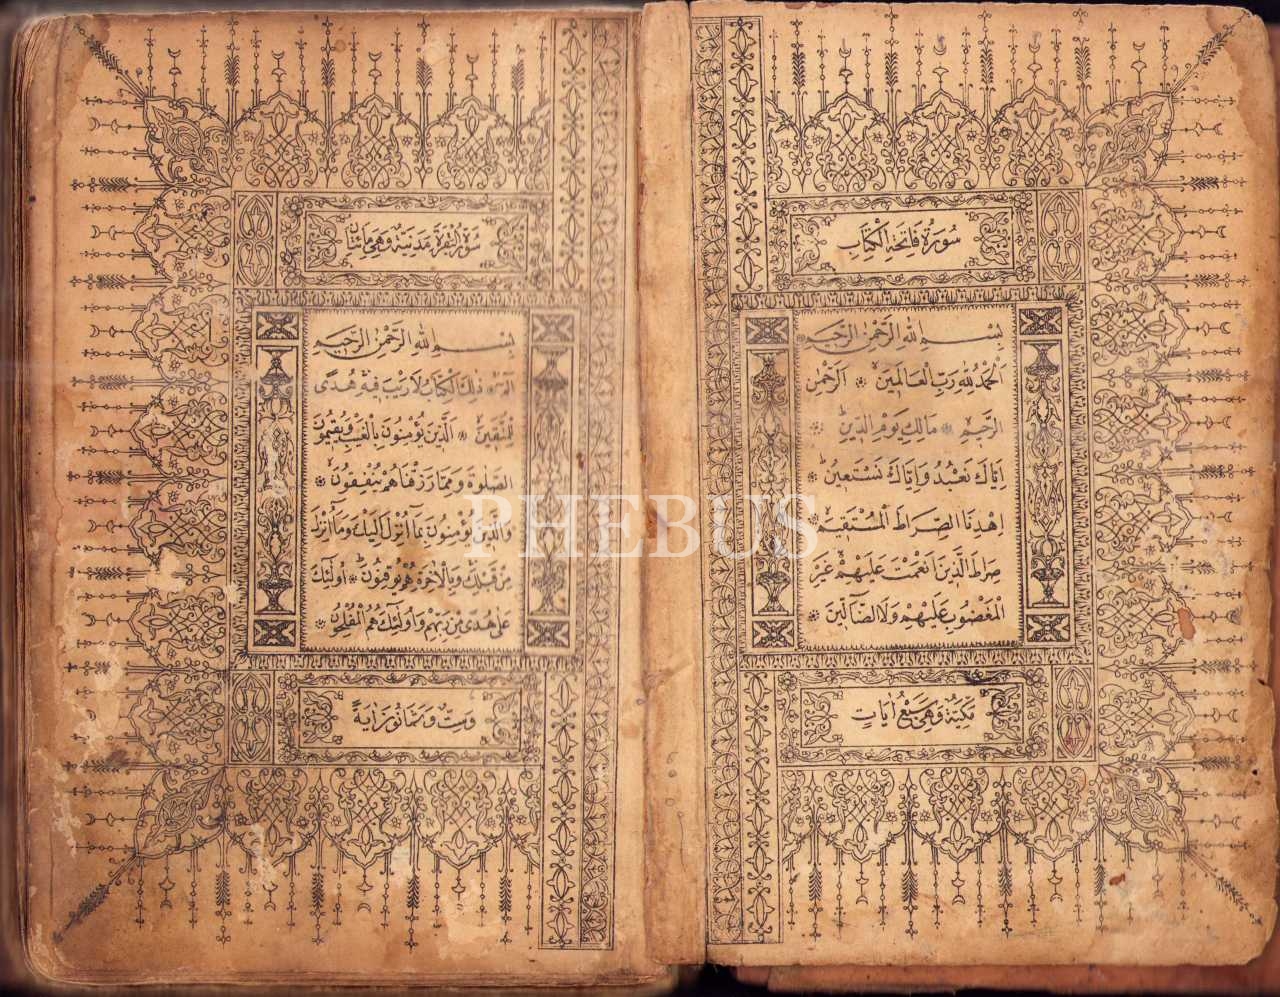 سُورَةُ فَاتِحَةِ الْكِتَابِ
بِسْمِ اللهِ الرَّحْمٰنِ الرَّحِيمِ
اَلْحَمْدُ لِلّٰهِ رَبِّ الْعَالَمِينَ ۞ اَلرَّحْمٰنِ
الرَّحِيمِ ۞ مَالِكِ يَوْمِ الدِّينِ ۞
اِيَّاكَ نَعْبُدُ وَاِيَّاكَ نَسْتَعِينُ ۞
اِهْدِنَا الصِّرَاطَ الْمُسْتَقِيمَ ۞
صِرَاطَ الَّذِينَ اَنْعَمْتَ عَلَيْهِمْ غَيْرِ
الْمَغْضُوبِ عَلَيْهِمْ وَلَا الضَّآلِّينَ ۞
مَكِّيَّةٌ وَهِيَ سَبْعُ اٰيَاتٍ
سُورَةُ الْبَقَرَةِ مَدَنِيَّةٌ وَهِيَ مِائَتَانِ
بِسْمِ اللهِ الرَّحْمٰنِ الرَّحِيمِ
الٓمٓ ۞ ذٰلِكَ الْكِتَابُ لَا رَيْبَ فِيهِ هُدًى
لِلْمُتَّقِينَ ۞ اَلَّذِينَ يُؤْمِنُونَ بِالْغَيْبِ وَيُقِيمُونَ
الصَّلٰوةَ وَمِمَّا رَزَقْنَاهُمْ يُنْفِقُونَ ۞
وَالَّذِينَ يُؤْمِنُونَ بِمَٓا اُنْزِلَ اِلَيْكَ وَمَٓا اُنْزِلَ
مِنْ قَبْلِكَ وَبِالْاٰخِرَةِ هُمْ يُوقِنُونَ ۞ اُولٰٓئِكَ
عَلٰى هُدًى مِنْ رَبِّهِمْ وَاُولٰٓئِكَ هُمُ الْمُفْلِحُونَ ۞
وَسِتٌّ وَثَمَانُونَ اٰيَةً
PHEBUS